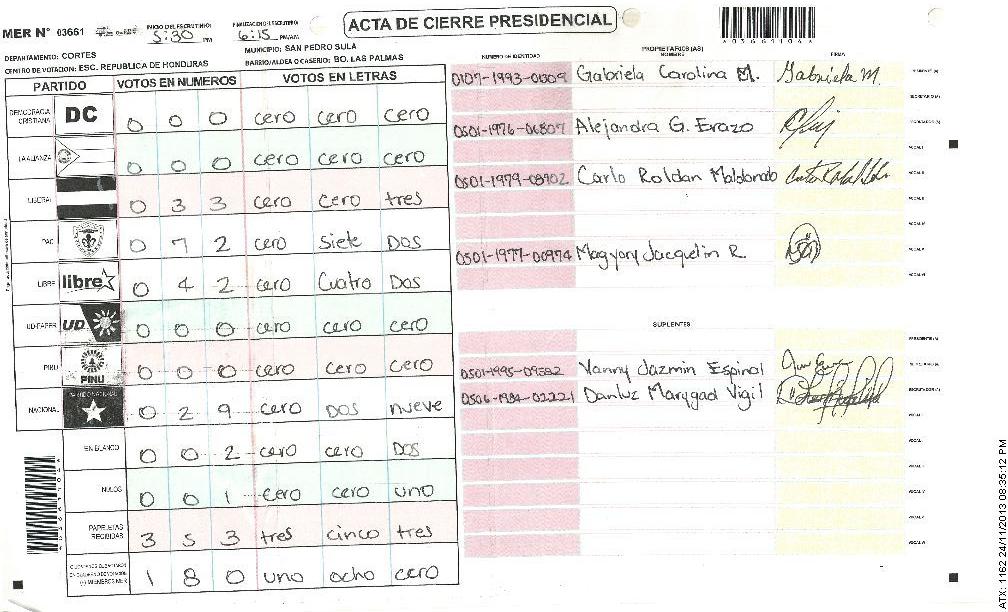 MER N° 03661
INICIO DEL ESCRUTINIO: 5:30 PM
FINALIZACION ESCRUTINIO: 6:15 PM/AM
ACTA DE CIERRE PRESIDENCIAL
DEPARTAMENTO: CORTES
MUNICIPIO: SAN PEDRO SULA
CENTRO DE VOTACION: ESC. REPUBLICA DE HONDURAS
BARRIO/ALDEA O CASERIO: BO. LAS PALMAS
PARTIDO VOTOS EN NUMEROS VOTOS EN LETRAS
DEMOCRACIA CRISTIANA DC 0 0 0 cero cero cero
LA ALIANZA 0 0 0 cero cero cero
LIBERAL 0 3 3 cero cero tres
PAC 0 7 2 cero siete Dos
LIBRE libre 0 4 2 cero cuatro Dos
UD-FAPER UD 0 0 0 cero cero cero
PINU PINU 0 0 0 cero cero cero
NACIONAL 0 2 9 cero Dos nueve
EN BLANCO 0 0 2 cero cero Dos
NULOS 0 0 1 cero cero uno
PAPELETAS RECIBIDAS 3 5 3 tres cinco tres
1 8 0 uno ocho cero
NUMERO DE IDENTIDAD
PROPIETARIOS (AS)
NOMBRES
FIRMA
0107-1993-01609 Gabriela Carolina M. Gabriela M. PRESIDENTE (A)
SECRETARIO (A)
0501-1976-06807 Alejandra G. Erazo ESCRUTADOR (A)
VOCAL I
0501-1979-08902 Carlo Roldan Maldonado VOCAL II
VOCAL III
VOCAL IV
0501-1977-00974 Magyory Jacquelin R. VOCAL V
VOCAL VI
SUPLENTES
PRESIDENTE (A)
0501-1995-09582 Yanny Jazmin Espinal SECRETARIO (A)
0506-1984-02221 Danluz Marygad Vigil ESCRUTADOR (A)
VOCAL I
VOCAL II
VOCAL III
VOCAL IV
VOCAL V
VOCAL VI
ATX: 1162 24/11/2013 08:35:12 PM